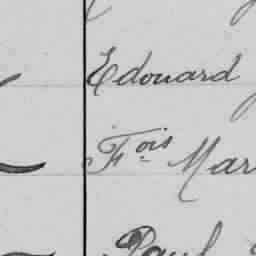 Edouard
Fois Mar
Paul